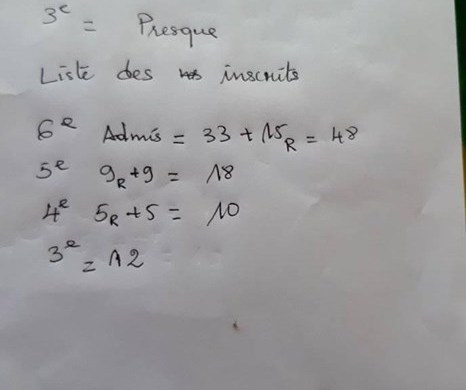 3e = Presque
Liste des inscrits
6e Admis = 33 + 15R = 48
5e 9R+9 = 18
4e 5R+5 = 10
3e = 12